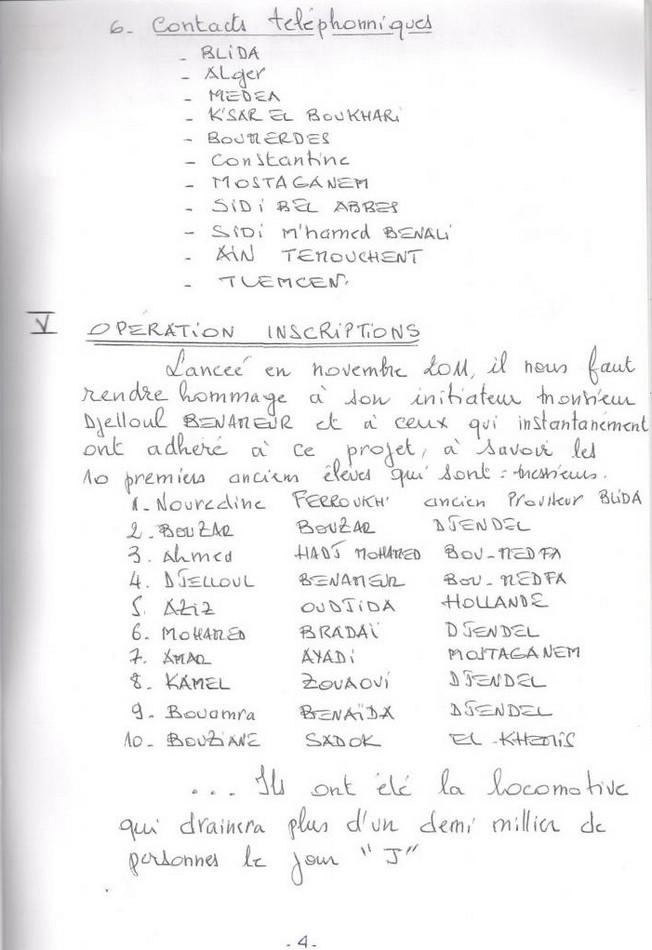 6- Contacts téléphonniques
- BLiDA
- Alger
- MEDEA
- K'SAR EL BOUKHARi
- BOUMERDES
- Constantine
- MOSTAGANEM
- SiDi BEL ABBES
- SiDi M'hamed BENALi
- AiN TEMOUCHENT
- TLEMCEN.
V OPÉRATION INSCRIPTIONS
Lanceé en novembre 2011, il nous faut
rendre hommage à son initiateur monsieur
Djelloul BENAMEUR et à ceux qui instantanement
ont adheré à ce projet, à savoir les
10 premiers anciens élèves qui sont : messieurs.
1. Nouredine FERROUKHi ancien Proviseur BLiDA
2. BOUZAR BOUZAR DJENDEL
3. Ahmed HADJ MOHAMED BOU-MEDFA
4. DJELLOUL BENAMEUR BOU-MEDFA
5. AZiZ OUDJiDA HOLLANDE
6. MOHAMED BRADAÏ DJENDEL
7. AMAR AYADi MOSTAGANEM
8. KAMEL ZOUAOUi DJENDEL
9- Bouamra BENAÏDA DJENDEL
10- BOUZiANE SADOK EL-KHEMiS
... Ils ont été la locomotive
qui drainera plus d'un demi millier de
personnes le jour "J"
-4-